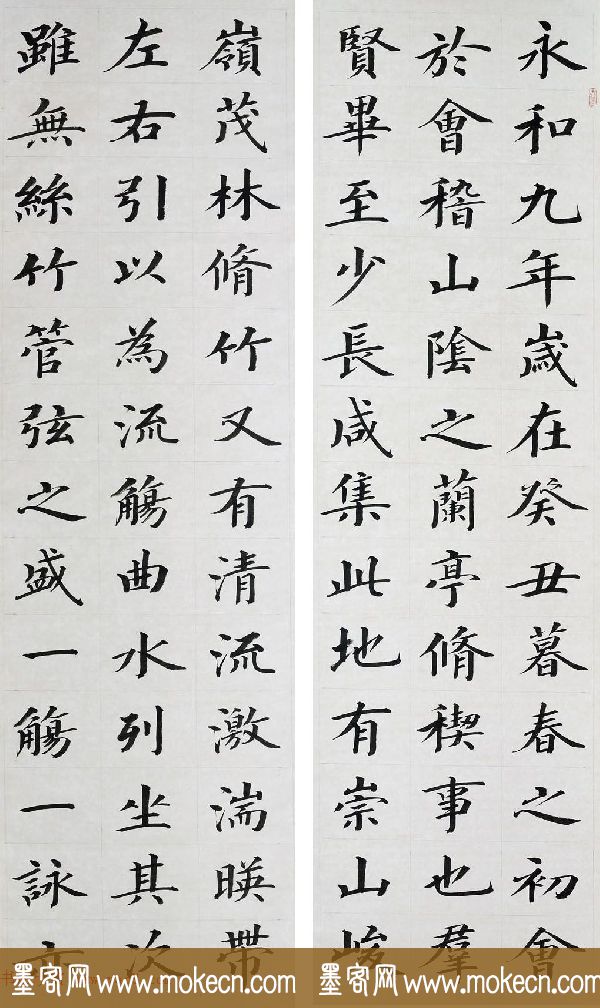 永和九年歲在癸丑暮春之初會
於會稽山陰之蘭亭脩稧事也羣
賢畢至少長咸集此地有崇山峻
嶺茂林脩竹又有清流激湍暎帶
左右引以為流觴曲水列坐其次
雖無絲竹管弦之盛一觴一詠亦
墨客网 www.mokecn.com 墨客网 www.mokecn.com